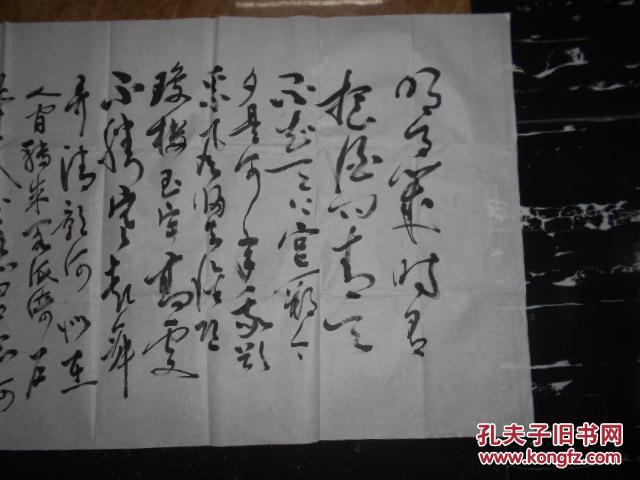 明月幾时有
把酒问青天
不知天上宫阙今
夕是何年我欲
乘风归去恐
琼楼玉宇高处
不勝寒起舞
弄清影何似在
人间转朱阁低绮户
孔夫子旧书网
www.kongfz.com